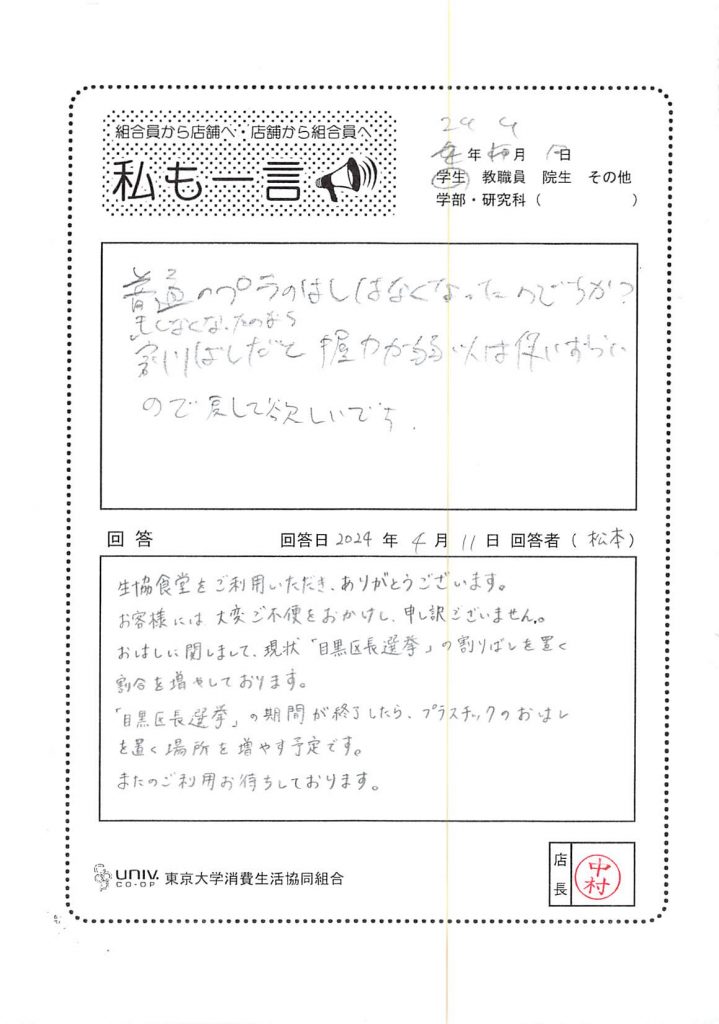 組合員から店舗へ・店舗から組合員へ
私も一言
24 4
年 月 日
学生 教職員 院生 その他
学部・研究科( )
普通のプラのはしはなくなったのですか?
もしなくなったのなら
割りばしだと握力が弱い人は使いずらい
ので戻して欲しいです.
回答 回答日 2024 年 4 月 11 日 回答者(松本)
生協食堂をご利用いただき、ありがとうございます。
お客様には大変ご不便をおかけし、申し訳ございません。
おはしに関しまして、現状「目黒区長選挙」の割りばしを置く
割合を増やしております。
「目黒区長選挙」の期間が終了したら、プラスチックのおはし
を置く場所を増やす予定です。
またのご利用お待ちしております。
UNIV. CO-OP 東京大学消費生活協同組合
店長 中村